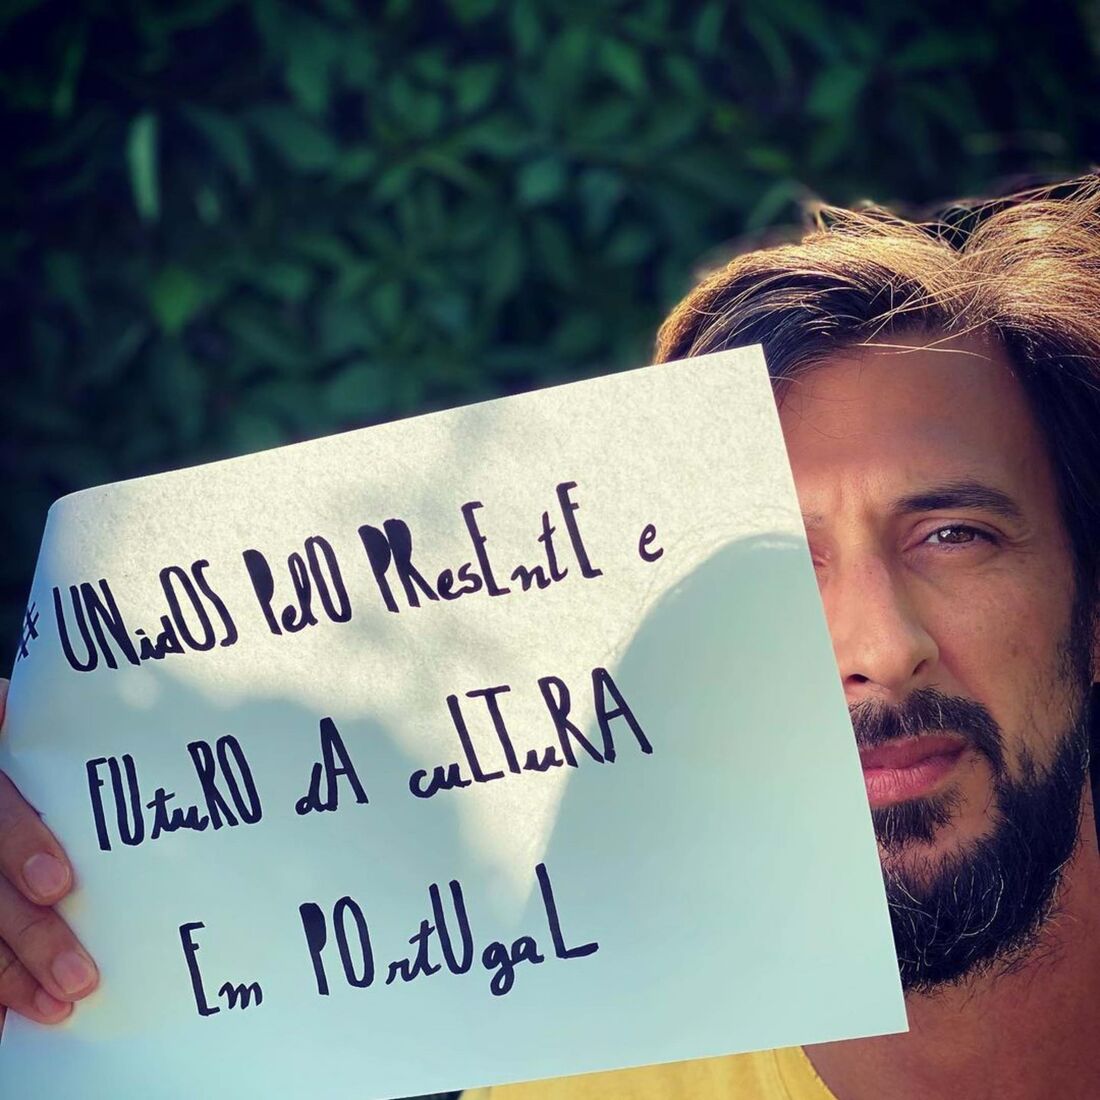 # UNidOS PelO PResEntE e
FUtuRO dA cuLTuRA
Em POrtUgaL